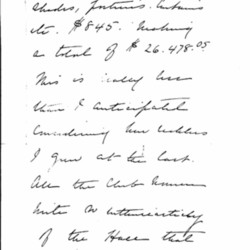 shades, fixtures. curtains
etc. $845. making
a total of $26.478.05
This is really less
than I anticipated
considering how reckless
I grew at the last.
All the Club women
unite
of the House that